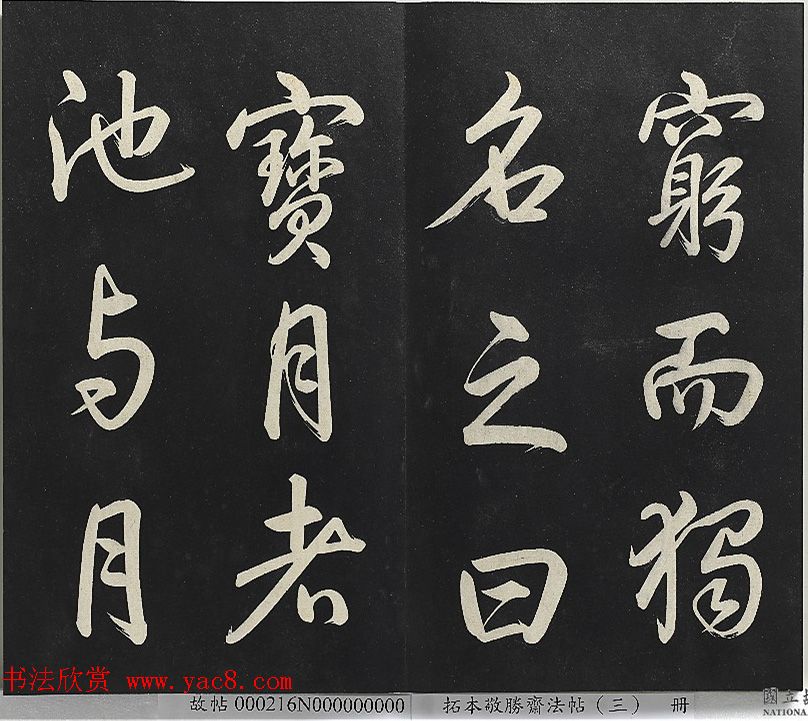 窮而獨
名之曰
寶月者
池与月
书法欣赏 www.yac8.com
故帖000216N000000000
拓本敬勝齋法帖(三) 冊
國立
NATIONA